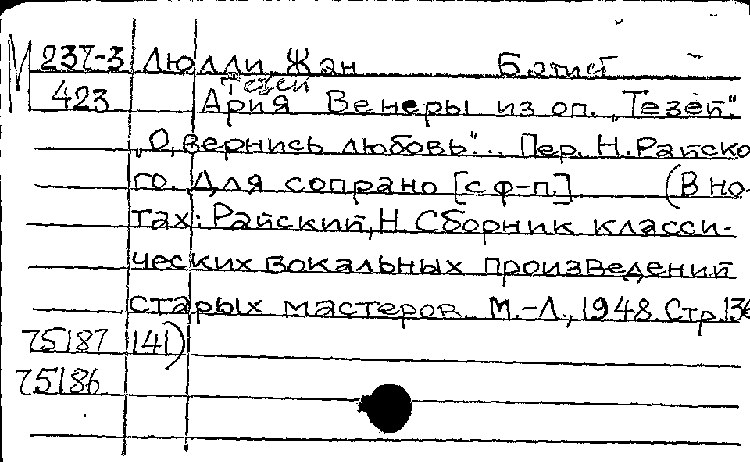 М 237-3 Люлли, Жан Батист
Тезей
423 Ария Венеры из оп. „Тезей".
„О, вернись любовь"... Пер. Н. Райско
го. Для сопрано [с ф-п.] (В но-
тах: Райский, Н Сборник класси-
ческих вокальных произведений
старых мастеров. М.-Л., 1948. Стр. 136
75187 141)
75186